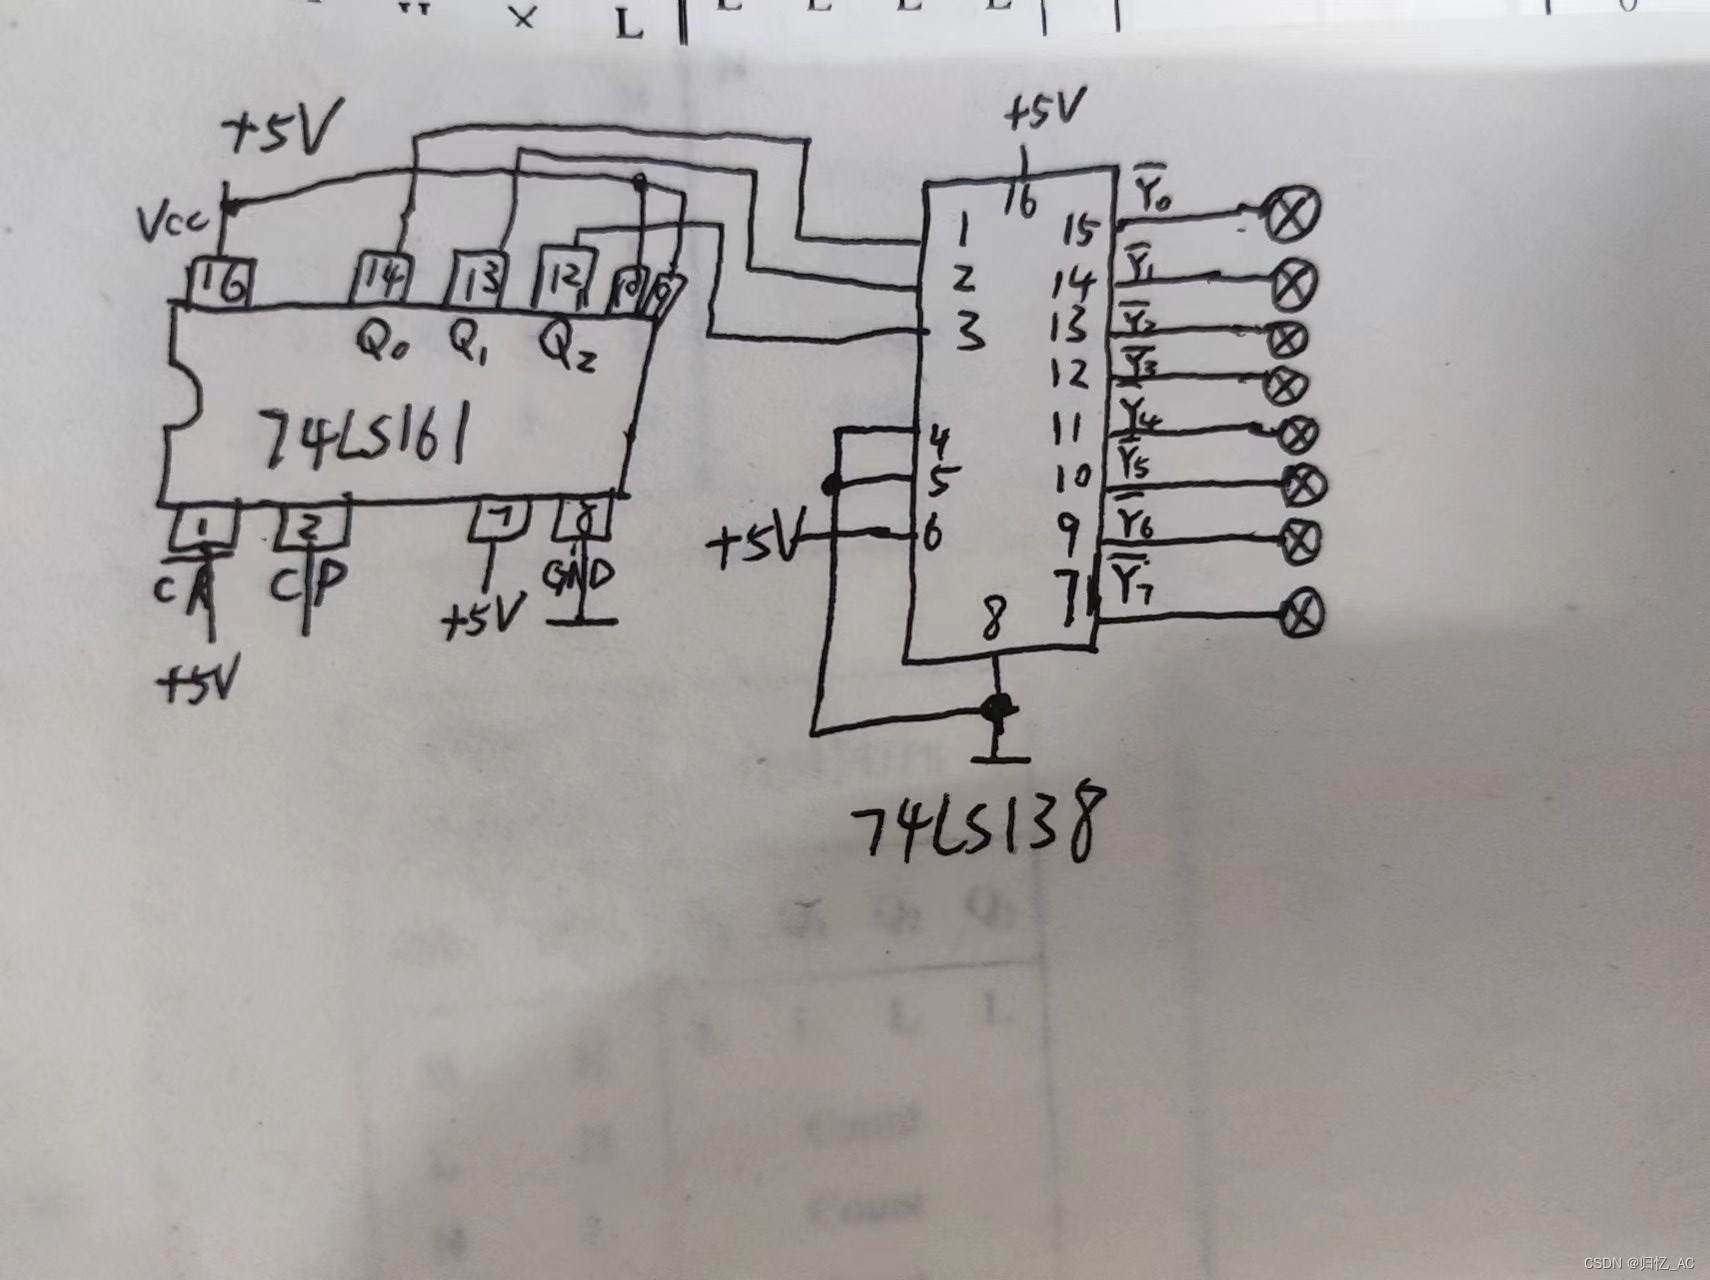 × L
L L L L
+5V
+5V
Vcc
16 14 13 12 10
Q0 Q1 Q2
74LS161
1 2 7 8
CP
GND
+5V
+5V
16
1 15 Y̅0
2 14 Y̅1
3 13 Y̅2
12 Y̅3
4 11 Y̅4
5 10 Y̅5
+5V 6 9 Y̅6
7 Y̅7
8
74LS138
L L
Count
Count
CSDN @归忆_AC